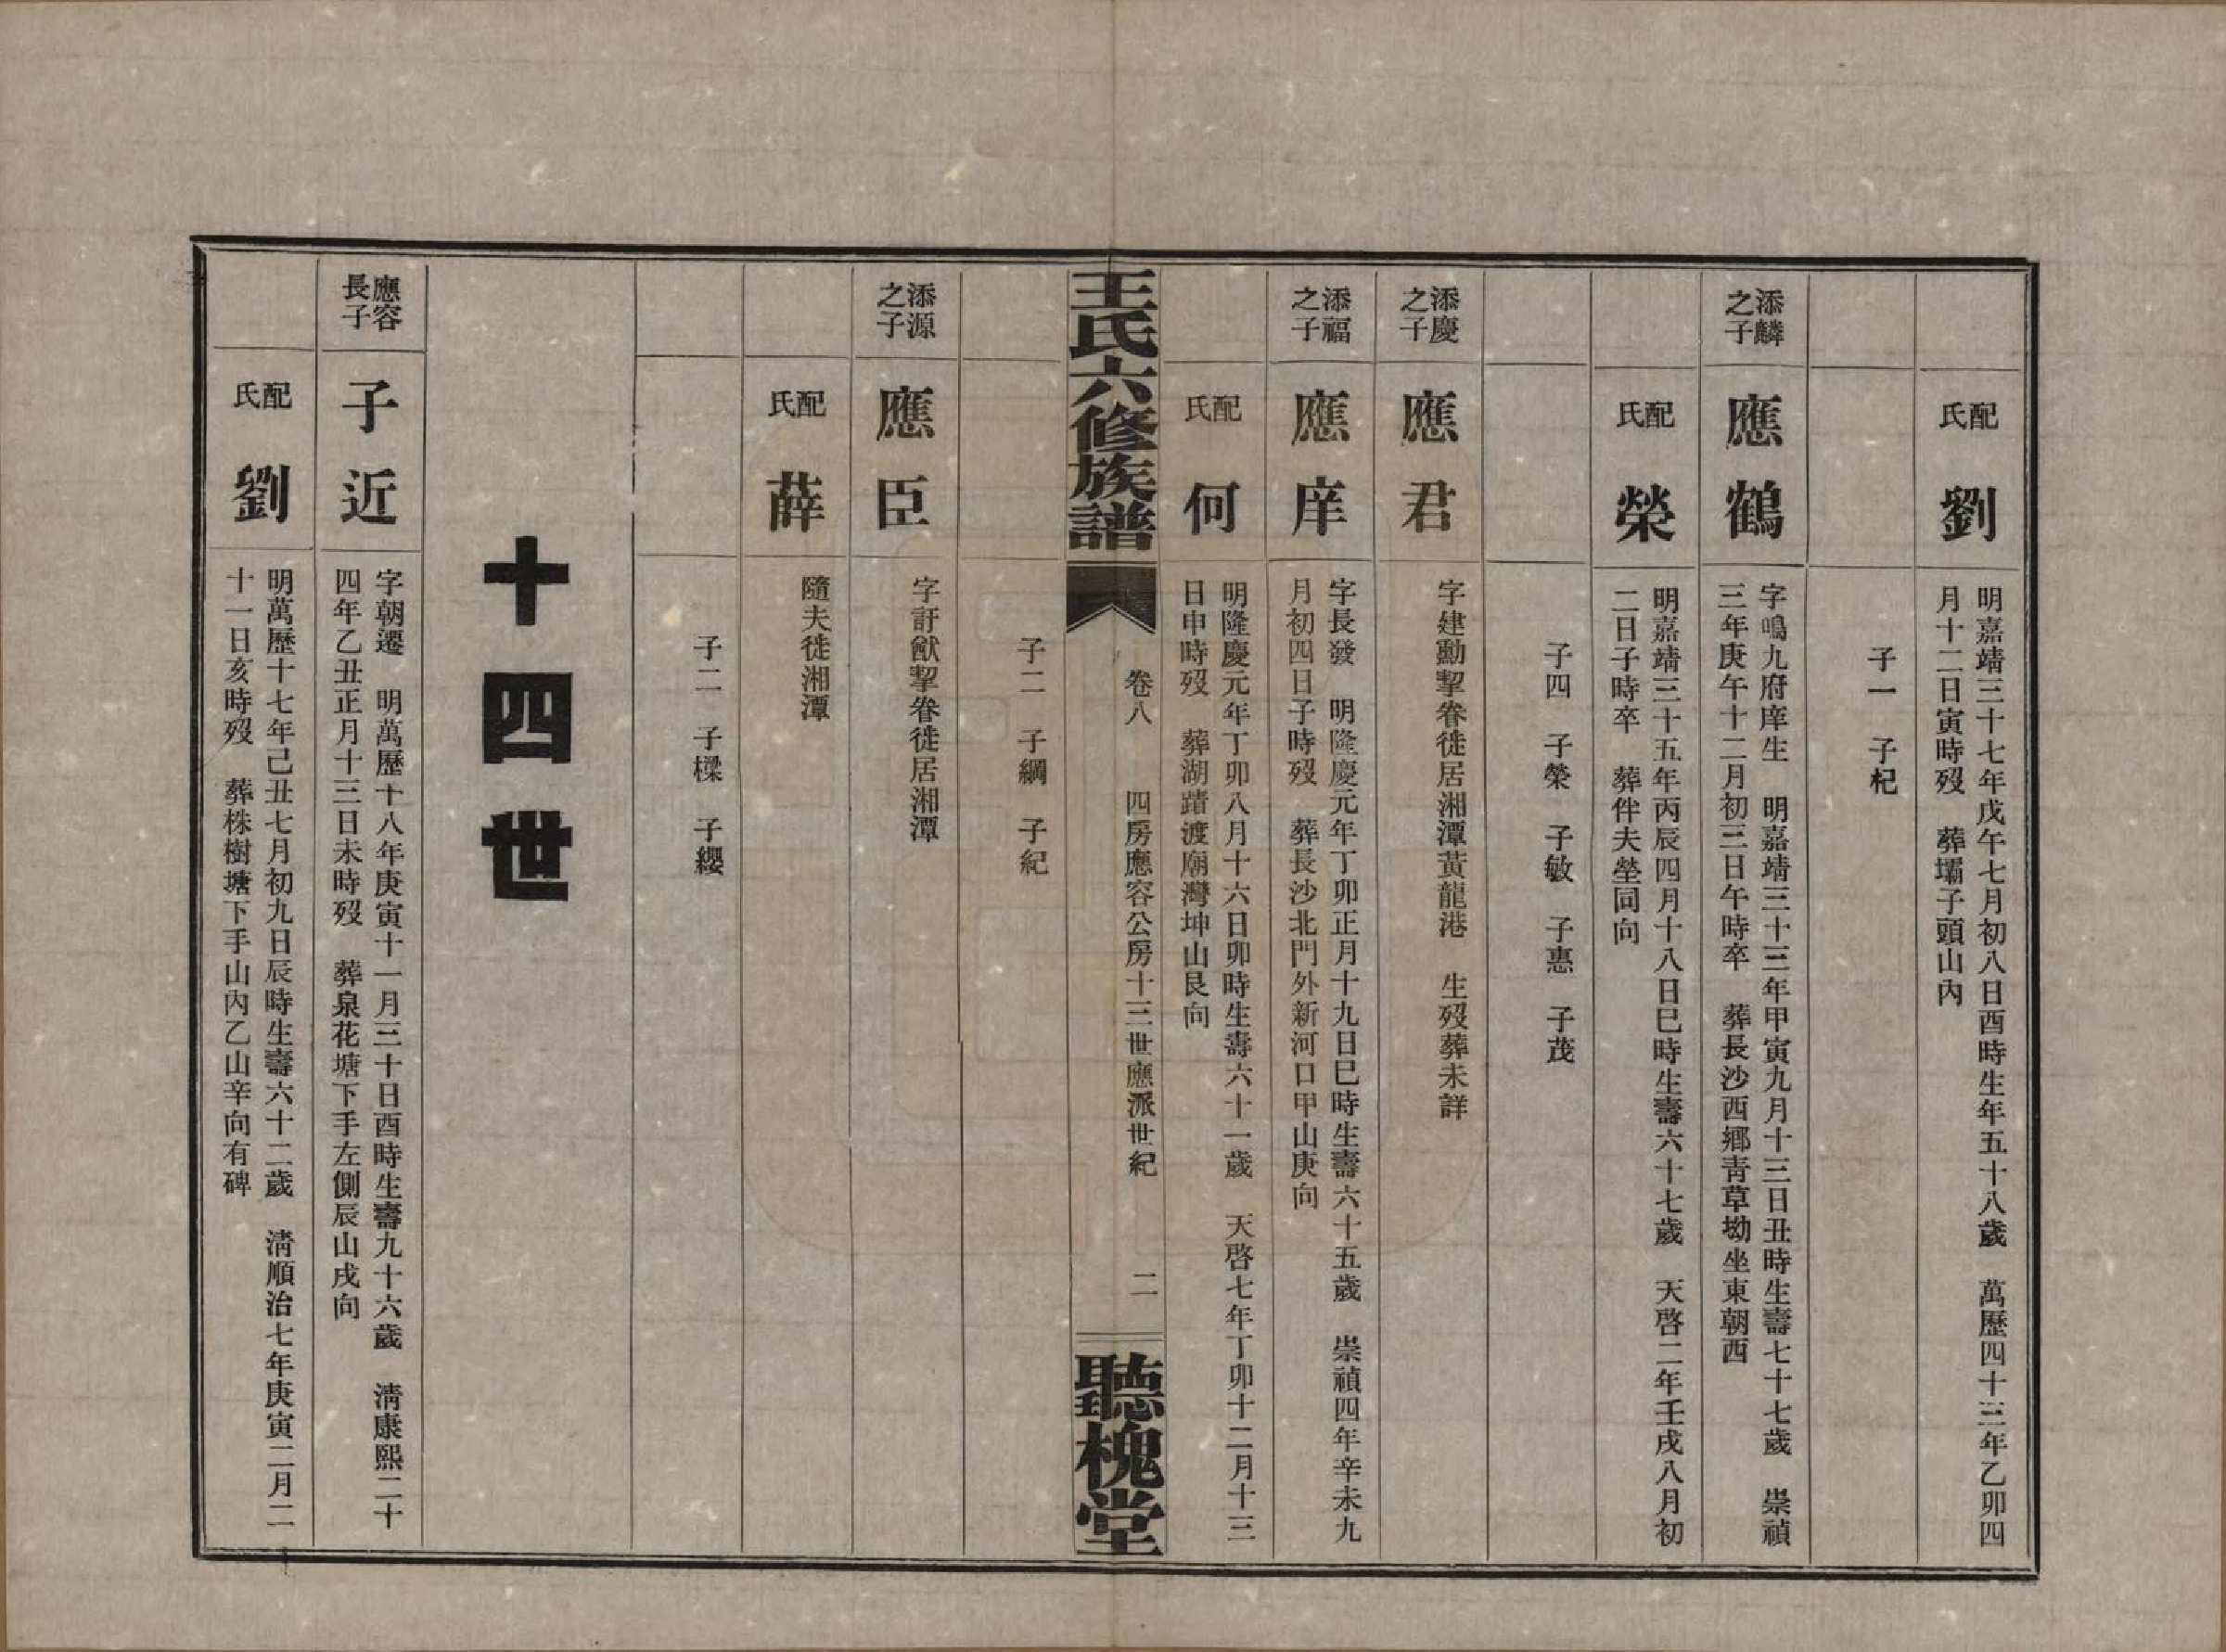 配氏
劉
明嘉靖三十七年戊午七月初八日酉時生年五十八歲　萬歷四十三年乙卯四
月十二日寅時歿　葬壩子頭山內
子一　子杞
添麟
之子
應鶴
字鳴九府庠生　明嘉靖三十三年甲寅九月十三日丑時生壽七十七歲　崇禎
三年庚午十二月初三日午時卒　葬長沙西鄉靑草坳坐東朝西
配氏
榮
明嘉靖三十五年丙辰四月十八日巳時生壽六十七歲　天啓二年壬戌八月初
二日子時卒　葬伴夫塋同向
子四　子榮　子敏　子惠　子茂
添慶
之子
應君
字建勳挈眷徙居湘潭黃龍港　生歿葬未詳
添福
之子
應庠
字長發　明隆慶元年丁卯正月十九日巳時生壽六十五歲　崇禎四年辛未九
月初四日子時歿　葬長沙北門外新河口甲山庚向
配氏
何
明隆慶元年丁卯八月十六日卯時生壽六十一歲　天啓七年丁卯十二月十三
日申時歿　葬湖蹟渡廟灣坤山艮向
王氏六修族譜
卷八　四房應容公房十三世應派世紀
二
聽槐堂
子二　子綱　子紀
添源
之子
應臣
字訏猷挈眷徙居湘潭
配氏
薛
隨夫徙湘潭
子二　子樑　子纓
十四世
應容
長子
子近
字朝遷　明萬歷十八年庚寅十一月三十日酉時生壽九十六歲　淸康熙二十
四年乙丑正月十三日未時歿　葬泉花塘下手左側辰山戌向
配氏
劉
明萬歷十七年己丑七月初九日辰時生壽六十二歲　淸順治七年庚寅二月二
十一日亥時歿　葬株樹塘下手山內乙山辛向有碑